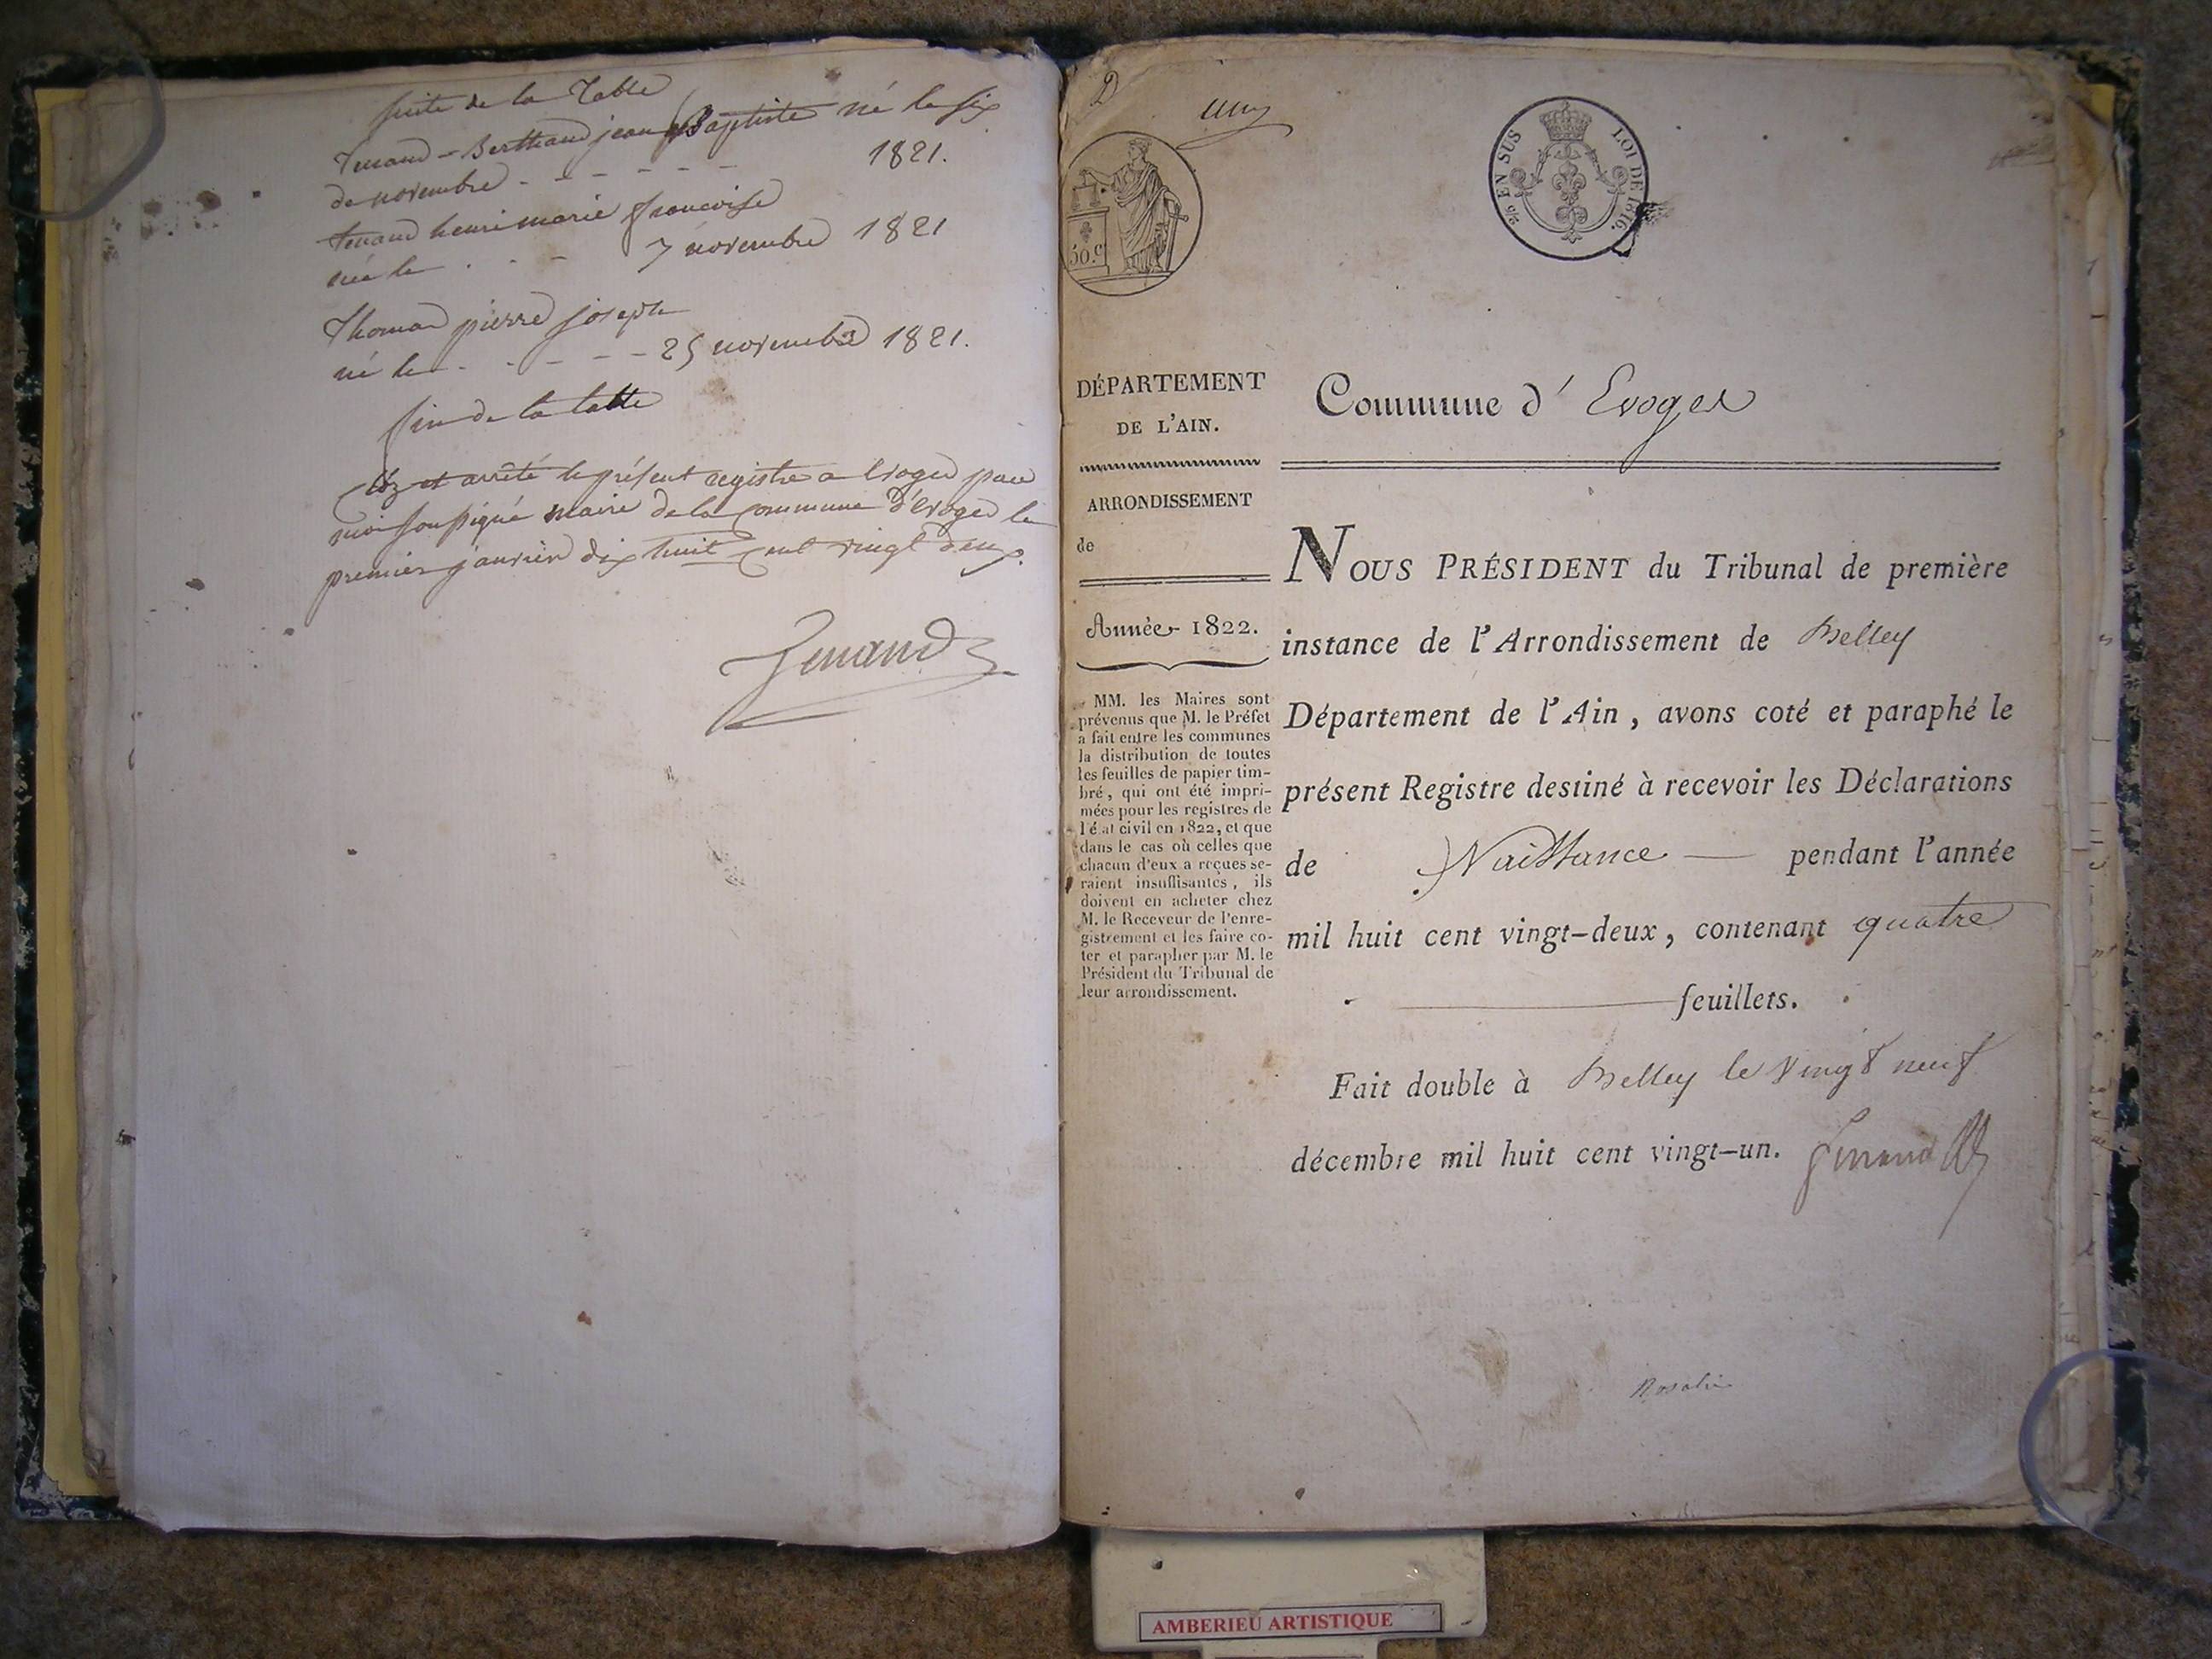 suite de la Table
Tenand - Berthaud jean Baptiste né le six
de novembre - - - - - - 1821.
tenand henri marie francoise
née le . - - 7 novembre 1821
Thomas pierre joseph
né le - - - - - 25 novembre 1821.
fin de la table
Cloz et arrêté le présent registre a Evoges par
moi soussigné maire de la commune d'Evoges le
premier janvier dix huit cent vingt deux.
Tenand
un
50.c
2/5 EN SUS
LOI DE 1816.
DÉPARTEMENT
DE L'AIN.
ARRONDISSEMENT
de
Année 1822.
MM. les Maires sont
prévenus que M. le Préfet
a fait entre les communes
la distribution de toutes
les feuilles de papier tim-
bré, qui ont été impri-
mées pour les registres de
l'état civil en 1822, et que
dans le cas où celles que
chacun d'eux a reçues se-
raient insuffisantes, ils
doivent en acheter chez
M. le Receveur de l'enre-
gistrement et les faire co-
ter et parapher par M. le
Président du Tribunal de
leur arrondissement.
Commune d'Evoges
NOUS PRÉSIDENT du Tribunal de première
instance de l'Arrondissement de Belley
Département de l'Ain, avons coté et paraphé le
présent Registre destiné à recevoir les Déclarations
de Naissance — pendant l'année
mil huit cent vingt-deux, contenant quatre
feuillets.
Fait double à Belley le vingt neuf
décembre mil huit cent vingt-un.
Rosalie
AMBERIEU ARTISTIQUE